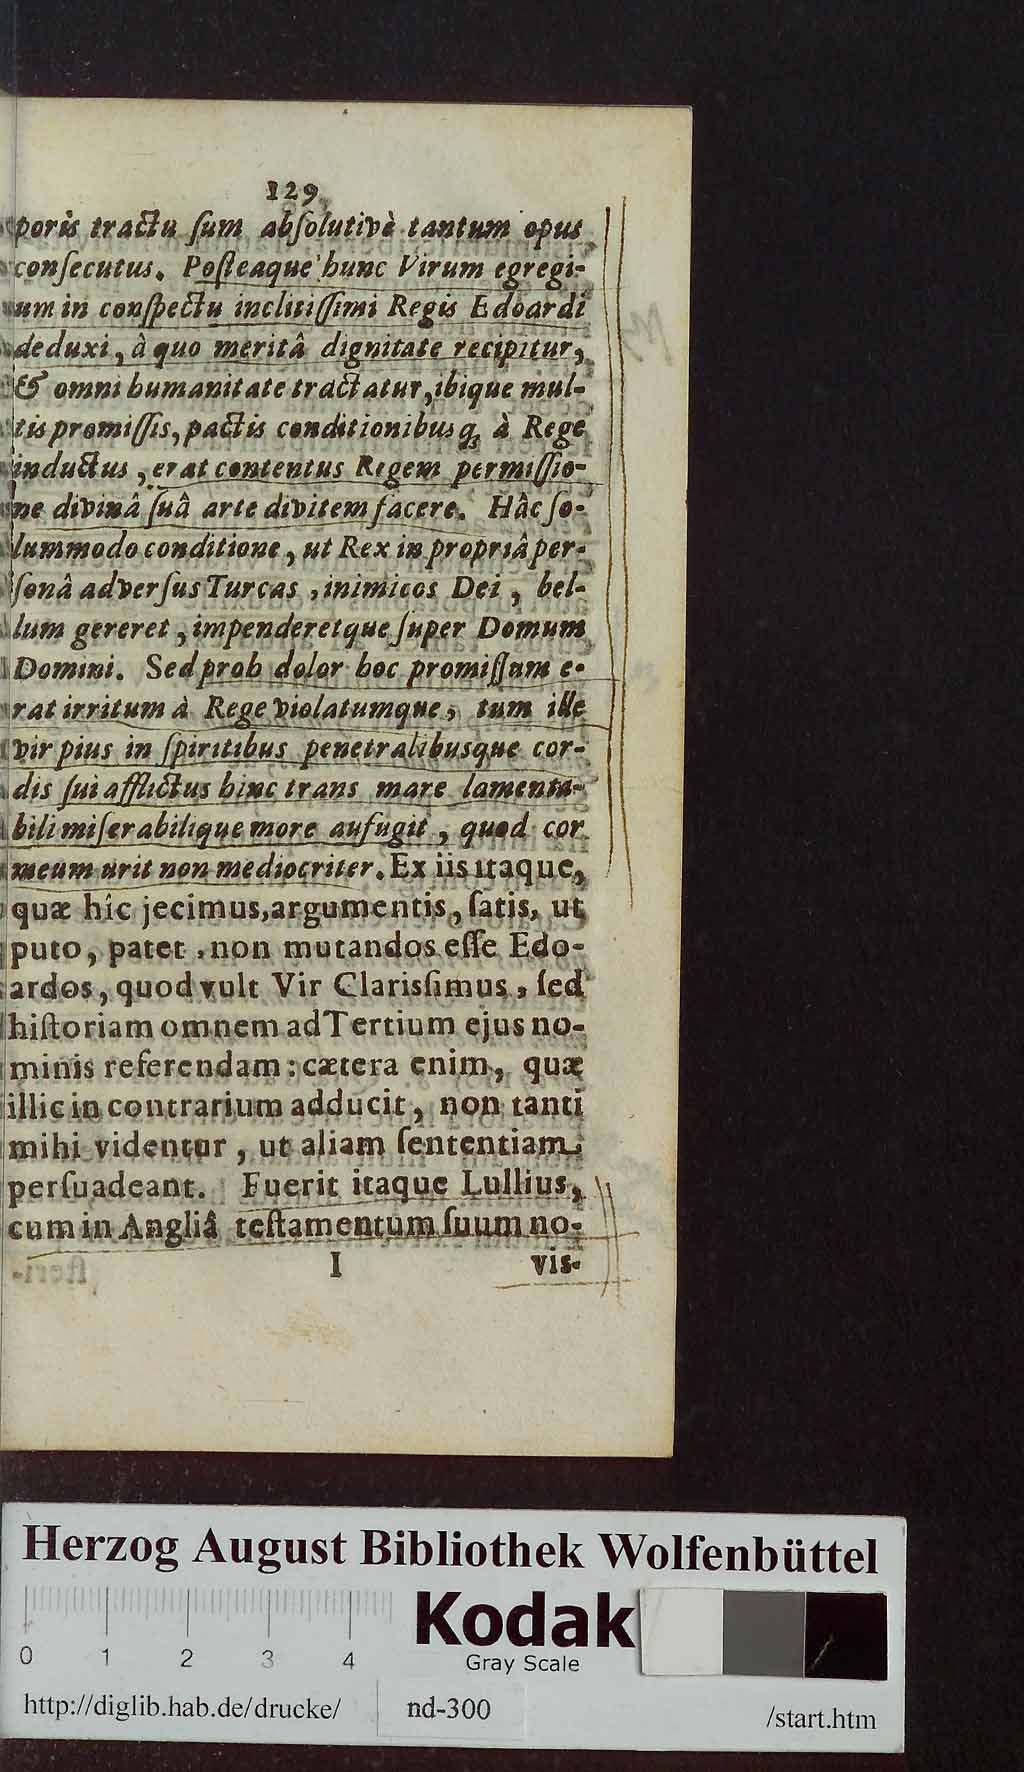 129
poris tractu ſum abſolutivè tantum opus
conſecutus. Poſteaque hunc Virum egregi-
um in conſpectu inclitiſſimi Regis Edoardi
deduxi, à quo meritâ dignitate recipitur,
& omni humanitate tractatur, ibique mul-
tis promiſſis, pactis conditionibusq; à Rege
inductus, erat contentus Regem permiſſio-
ne divinâ ſuâ arte divitem facere. Hâc ſo-
lummodo conditione, ut Rex in propriâ per-
ſonâ adverſus Turcas, inimicos Dei, bel-
lum gereret, impenderetque ſuper Domum
Domini. Sed proh dolor hoc promiſſum e-
rat irritum à Rege violatumque, tum ille
vir pius in ſpiritibus penetralibusque cor-
dis ſui afflictus hinc trans mare lamenta-
bili miſerabilique more aufugit, quod cor
meum urit non mediocriter. Ex iis itaque,
quæ hîc jecimus, argumentis, ſatis, ut
puto, patet, non mutandos eſſe Edo-
ardos, quod vult Vir Clarisſimus, ſed
hiſtoriam omnem ad Tertium ejus no-
minis referendam: cætera enim, quæ
illic in contrarium adducit, non tanti
mihi videntur, ut aliam ſententiam
perſuadeant. Fuerit itaque Lullius,
cum in Angliâ teſtamentum ſuum no-
I vis-
Herzog August Bibliothek Wolfenbüttel
Kodak
Gray Scale
0 1 2 3 4
http://diglib.hab.de/drucke/ nd-300 /start.htm